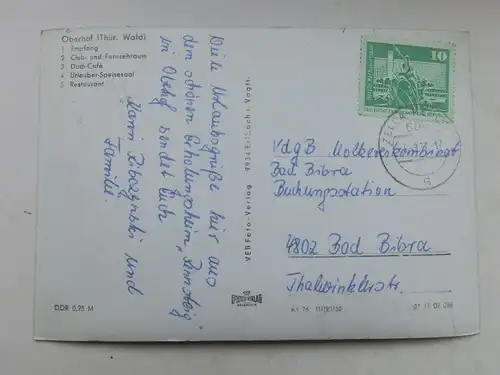 Oberhof (Thür. Wald)
1 Empfang
2 Club- und Fernsehraum
3 Dudi-Café
4 Urlauber-Speisesaal
5 Restaurant
Viele Urlaubsgrüße hier aus
dem schönen Erholungsheim „Rennsteig"
in Oberhof sendet Euch
Karin und
Familie.
VEB Foto-Verlag 9934 Erlbach i. Vogtl.
10
VdgB Molkereikombinat
Bad Bibra
Buchungsstation
4802 Bad Bibra
Thalwinklerstr.
DDR 0,95 M
01 11 01 296